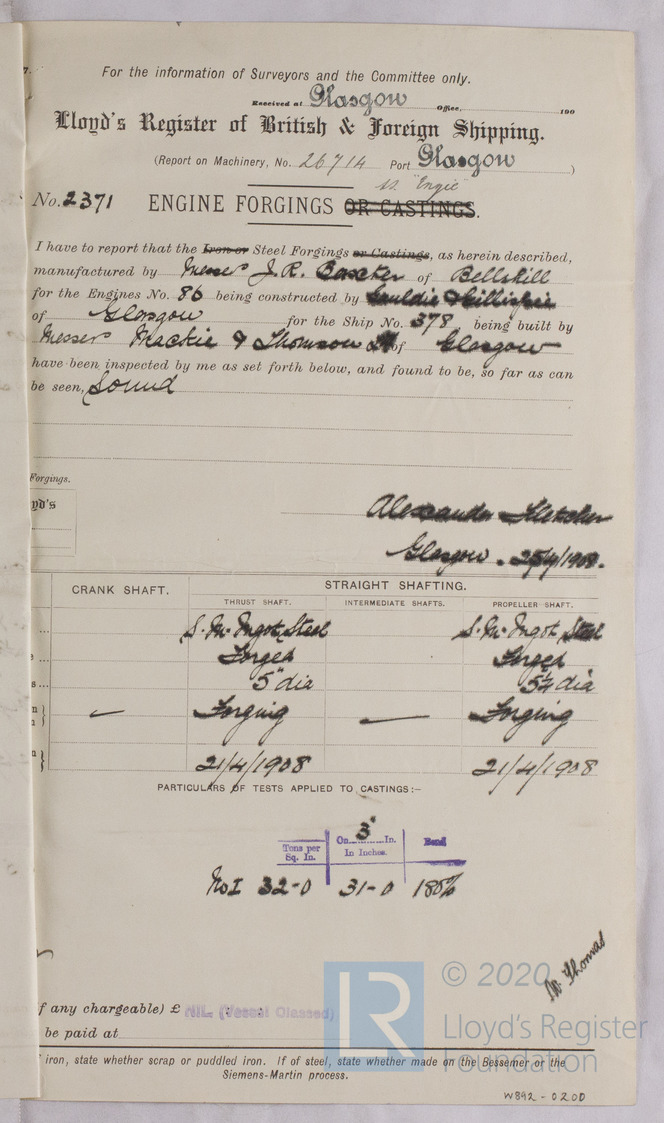 For the information of Surveyors and the Committee only.
Received at Glasgow Office. 190
Lloyd's Register of British & Foreign Shipping.
(Report on Machinery, No. 26714 Port Glasgow)
"Engie"
No. 2371 ENGINE FORGINGS OR CASTINGS.
I have to report that the Iron or Steel Forgings or Castings, as herein described,
manufactured by Messrs J. R. of Bellshill
for the Engines No. 86 being constructed by Gauldie Gillispie
of Glasgow for the Ship No. 378 being built by
Messrs Mackie & Thomson of Glasgow
have been inspected by me as set forth below, and found to be, so far as can
be seen, Sound
Forgings.
yd's
Alexander Fletcher
Glasgow. 25/4/1908.
CRANK SHAFT. STRAIGHT SHAFTING.
THRUST SHAFT. INTERMEDIATE SHAFTS. PROPELLER SHAFT.
S. M. Ingot Steel S. M. Ingot Steel
Forged Forged
5" dia 5¼ dia
— Forging — Forging
21/4/1908 21/4/1908
PARTICULARS OF TESTS APPLIED TO CASTINGS:–
Tons per Sq. In. On 3" In. In Inches. Bend
No I 32-0 31-0 180%
W. Thomas
f any chargeable) £ NIL (Vessel Classed)
be paid at
iron, state whether scrap or puddled iron. If of steel, state whether made on the Bessemer or the
Siemens-Martin process.
© 2020
Lloyd's Register
Foundation
W892-0200